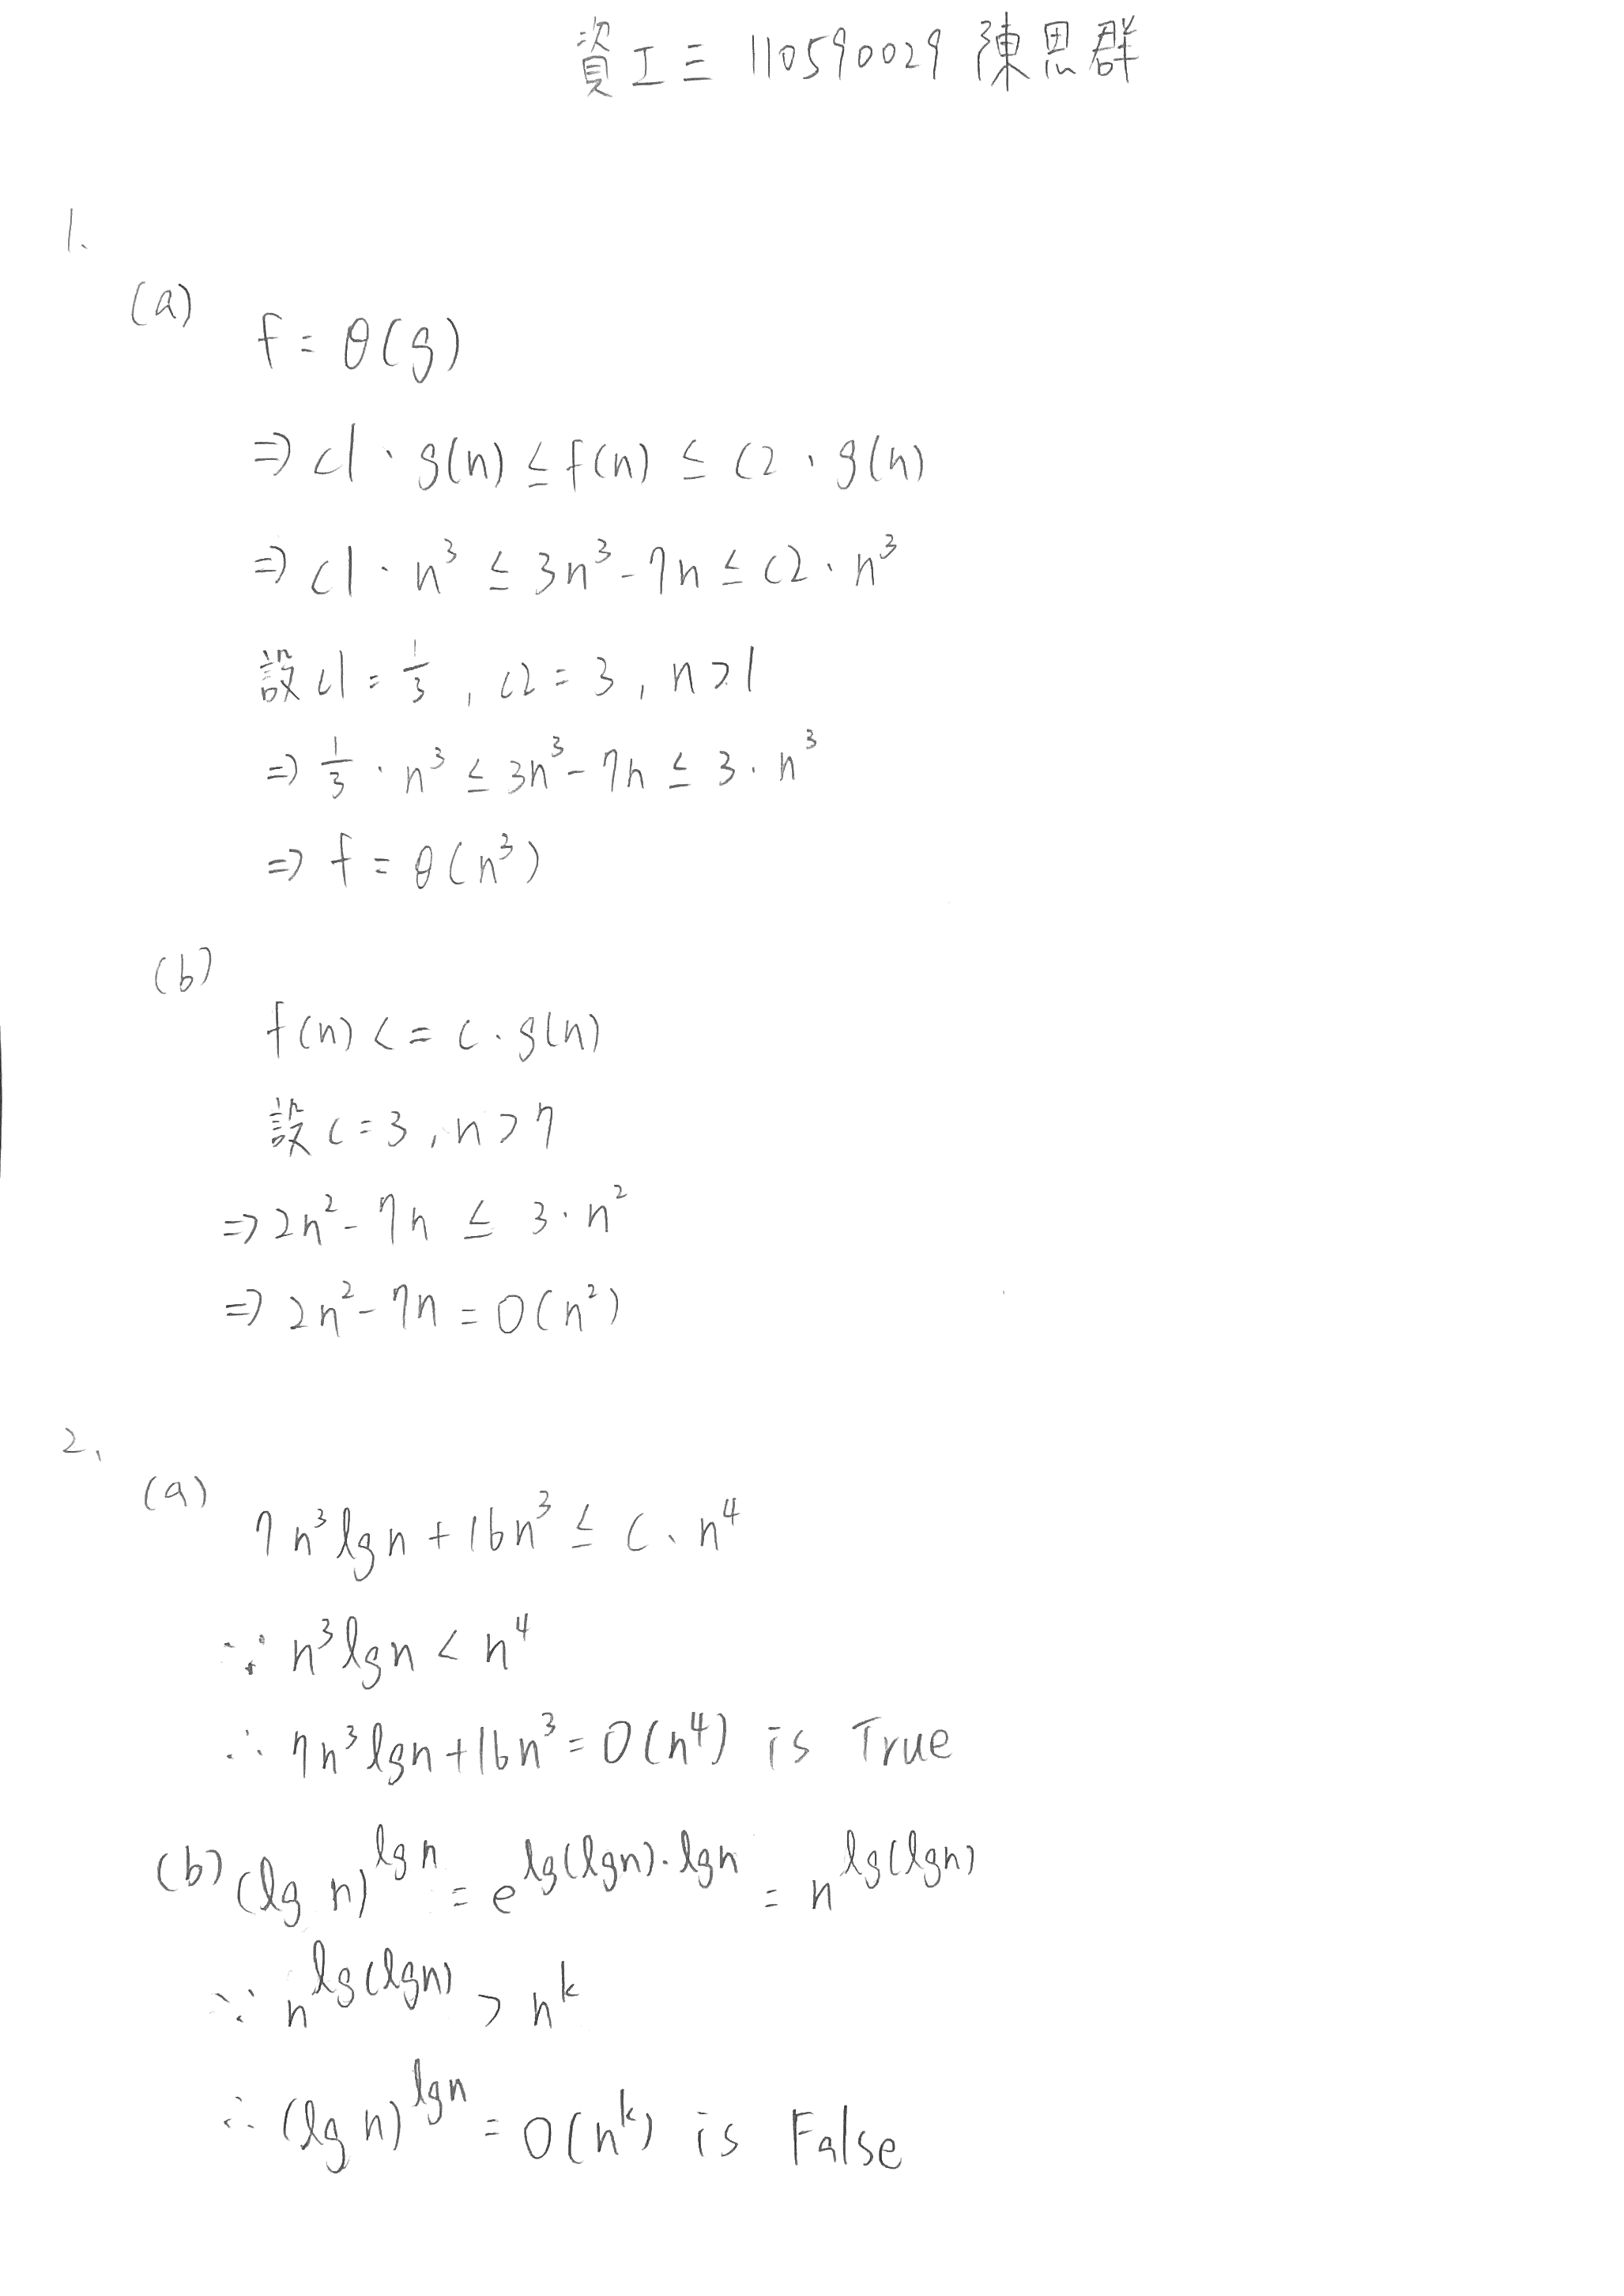 資工三 110590029 陳思群
1.
(a)
f = θ(g)
⇒ c1 · g(n) ≤ f(n) ≤ c2 · g(n)
⇒ c1 · n³ ≤ 3n³ - 7n ≤ c2 · n³
設 c1 = 1/3 , c2 = 3 , n > 1
⇒ 1/3 · n³ ≤ 3n³ - 7n ≤ 3 · n³
⇒ f = θ(n³)
(b)
f(n) <= c · g(n)
設 c = 3 , n > 7
⇒ 2n² - 7n ≤ 3 · n²
⇒ 2n² - 7n = O(n²)
2.
(a)
7n³ lg n + 16n³ ≤ c · n⁴
∵ n³ lg n < n⁴
∴ 7n³ lg n + 16n³ = O(n⁴) is True
(b) (lg n)^lg n = e^lg(lg n) · lg n = n^lg(lg n)
∵ n^lg(lg n) > n^k
∴ (lg n)^lg n = O(n^k) is False